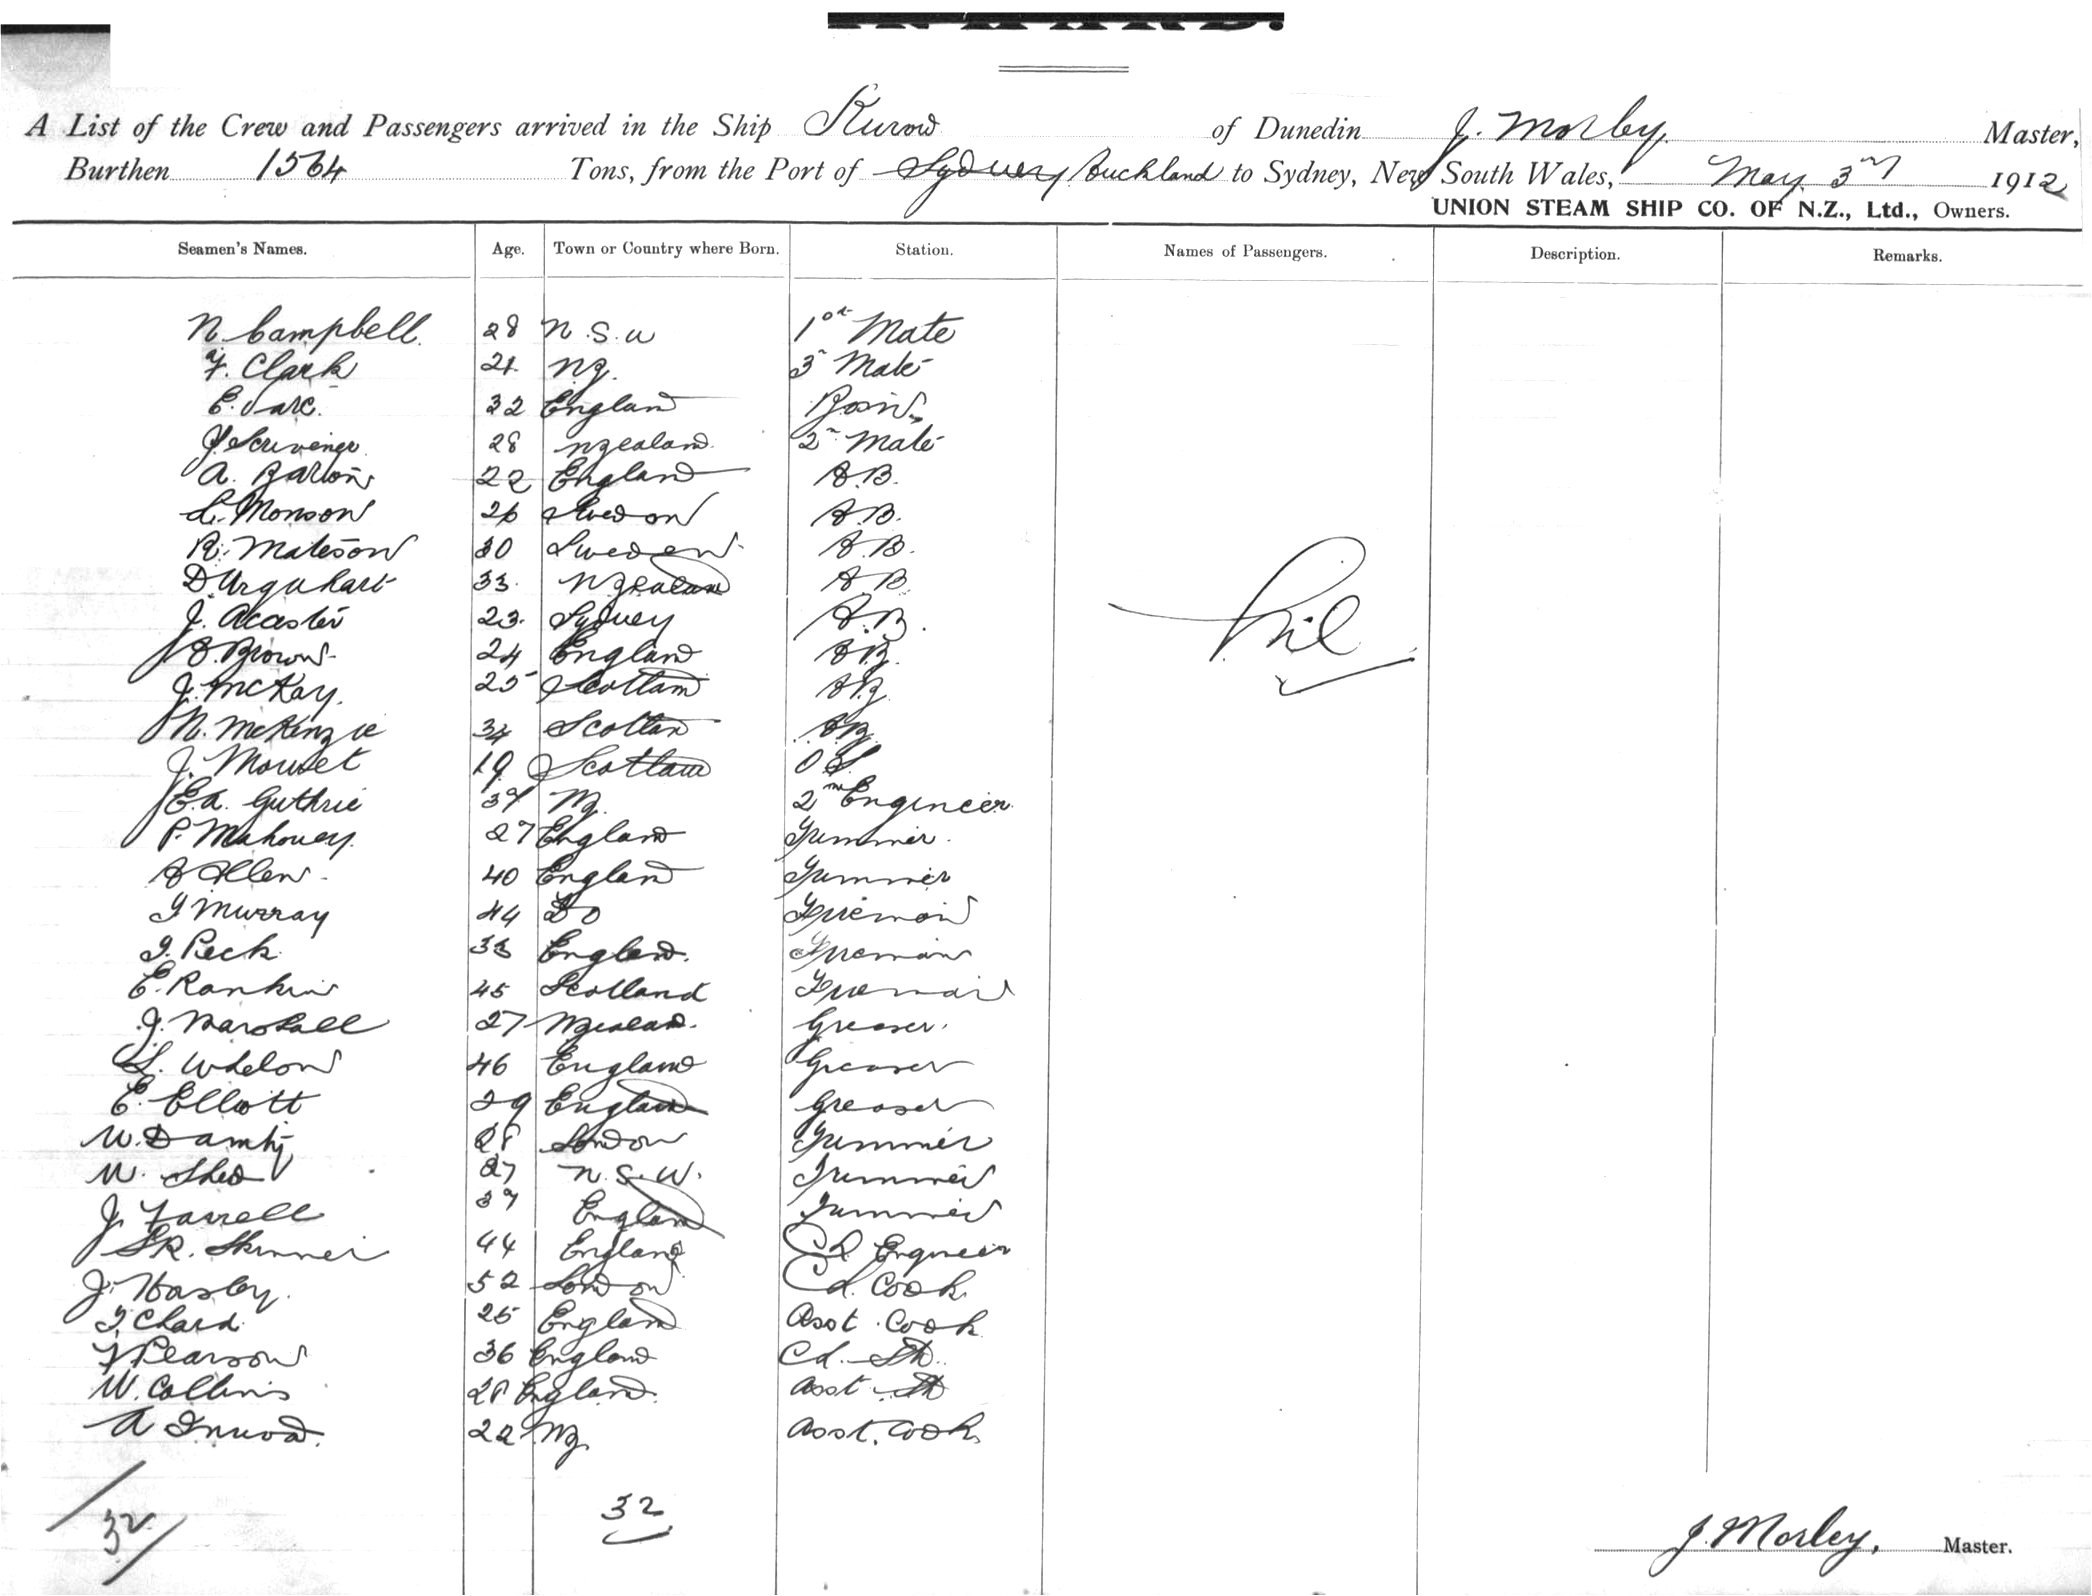 A List of the Crew and Passengers arrived in the Ship Kurow of Dunedin J. Morley. Master,
Burthen 1564 Tons, from the Port of Sydney Auckland to Sydney, New South Wales, May 3rd 1912
UNION STEAM SHIP CO. OF N.Z., Ltd., Owners.
Seamen's Names. Age. Town or Country where Born. Station. Names of Passengers. Description. Remarks.
N. Campbell. 28 N.S.W 1st Mate
F. Clark 21. NZ. 3rd Mate
E. 32 England Bosn.
J. Scrivener. 28 NZealand. 2nd Mate
A. Barton 22 England A.B.
L. Monson 26 Swedon A.B.
R. Mateson 30 Sweden A.B.
D. Urquhart 33. NZealan A.B.
J. Acaster 23. Sydney A.B.
A. Brown 24 England A.B.
J. McKay. 25 Scotlan A.B.
N. McKenzie 34 Scotlan A.B.
J. Mowet 19 Scotlan O.S.
E.A. Guthrie 39 NZ. 2nd Engineer.
P. Mahoney. 27 England Trimmer.
A Allen. 40 England Trimmer
J Murray 44 Do Fireman
J. Peck 33 England. Fireman
E. Rankin 45 Scotland Fireman
J. Marshall 27 NZealan. Greaser.
S. Whelon 46 England Greaser
E. Elliott 29 England Greaser
W. 28 London Trimmer
W. Shea 27 N.S.W. Trimmer
J. Farrell 39 England Trimmer
S.R. Skinner 44 England Ch Engineer
J. Hasley. 52 London Ch. Cook
T. Chard. 25 England Asst. Cook
F Pearson 36 England Ch. St.
W. Collins 28 England. Asst. St
A Inwood. 22 NZ. Asst. Cook.
Nil
32
32
J. Morley, Master.